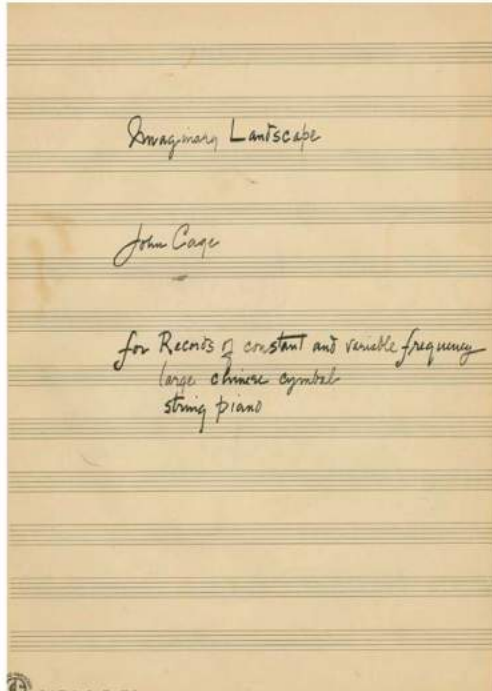 Imaginary Landscape
John Cage
for Records of constant and variable frequency
large chinese cymbal
string piano